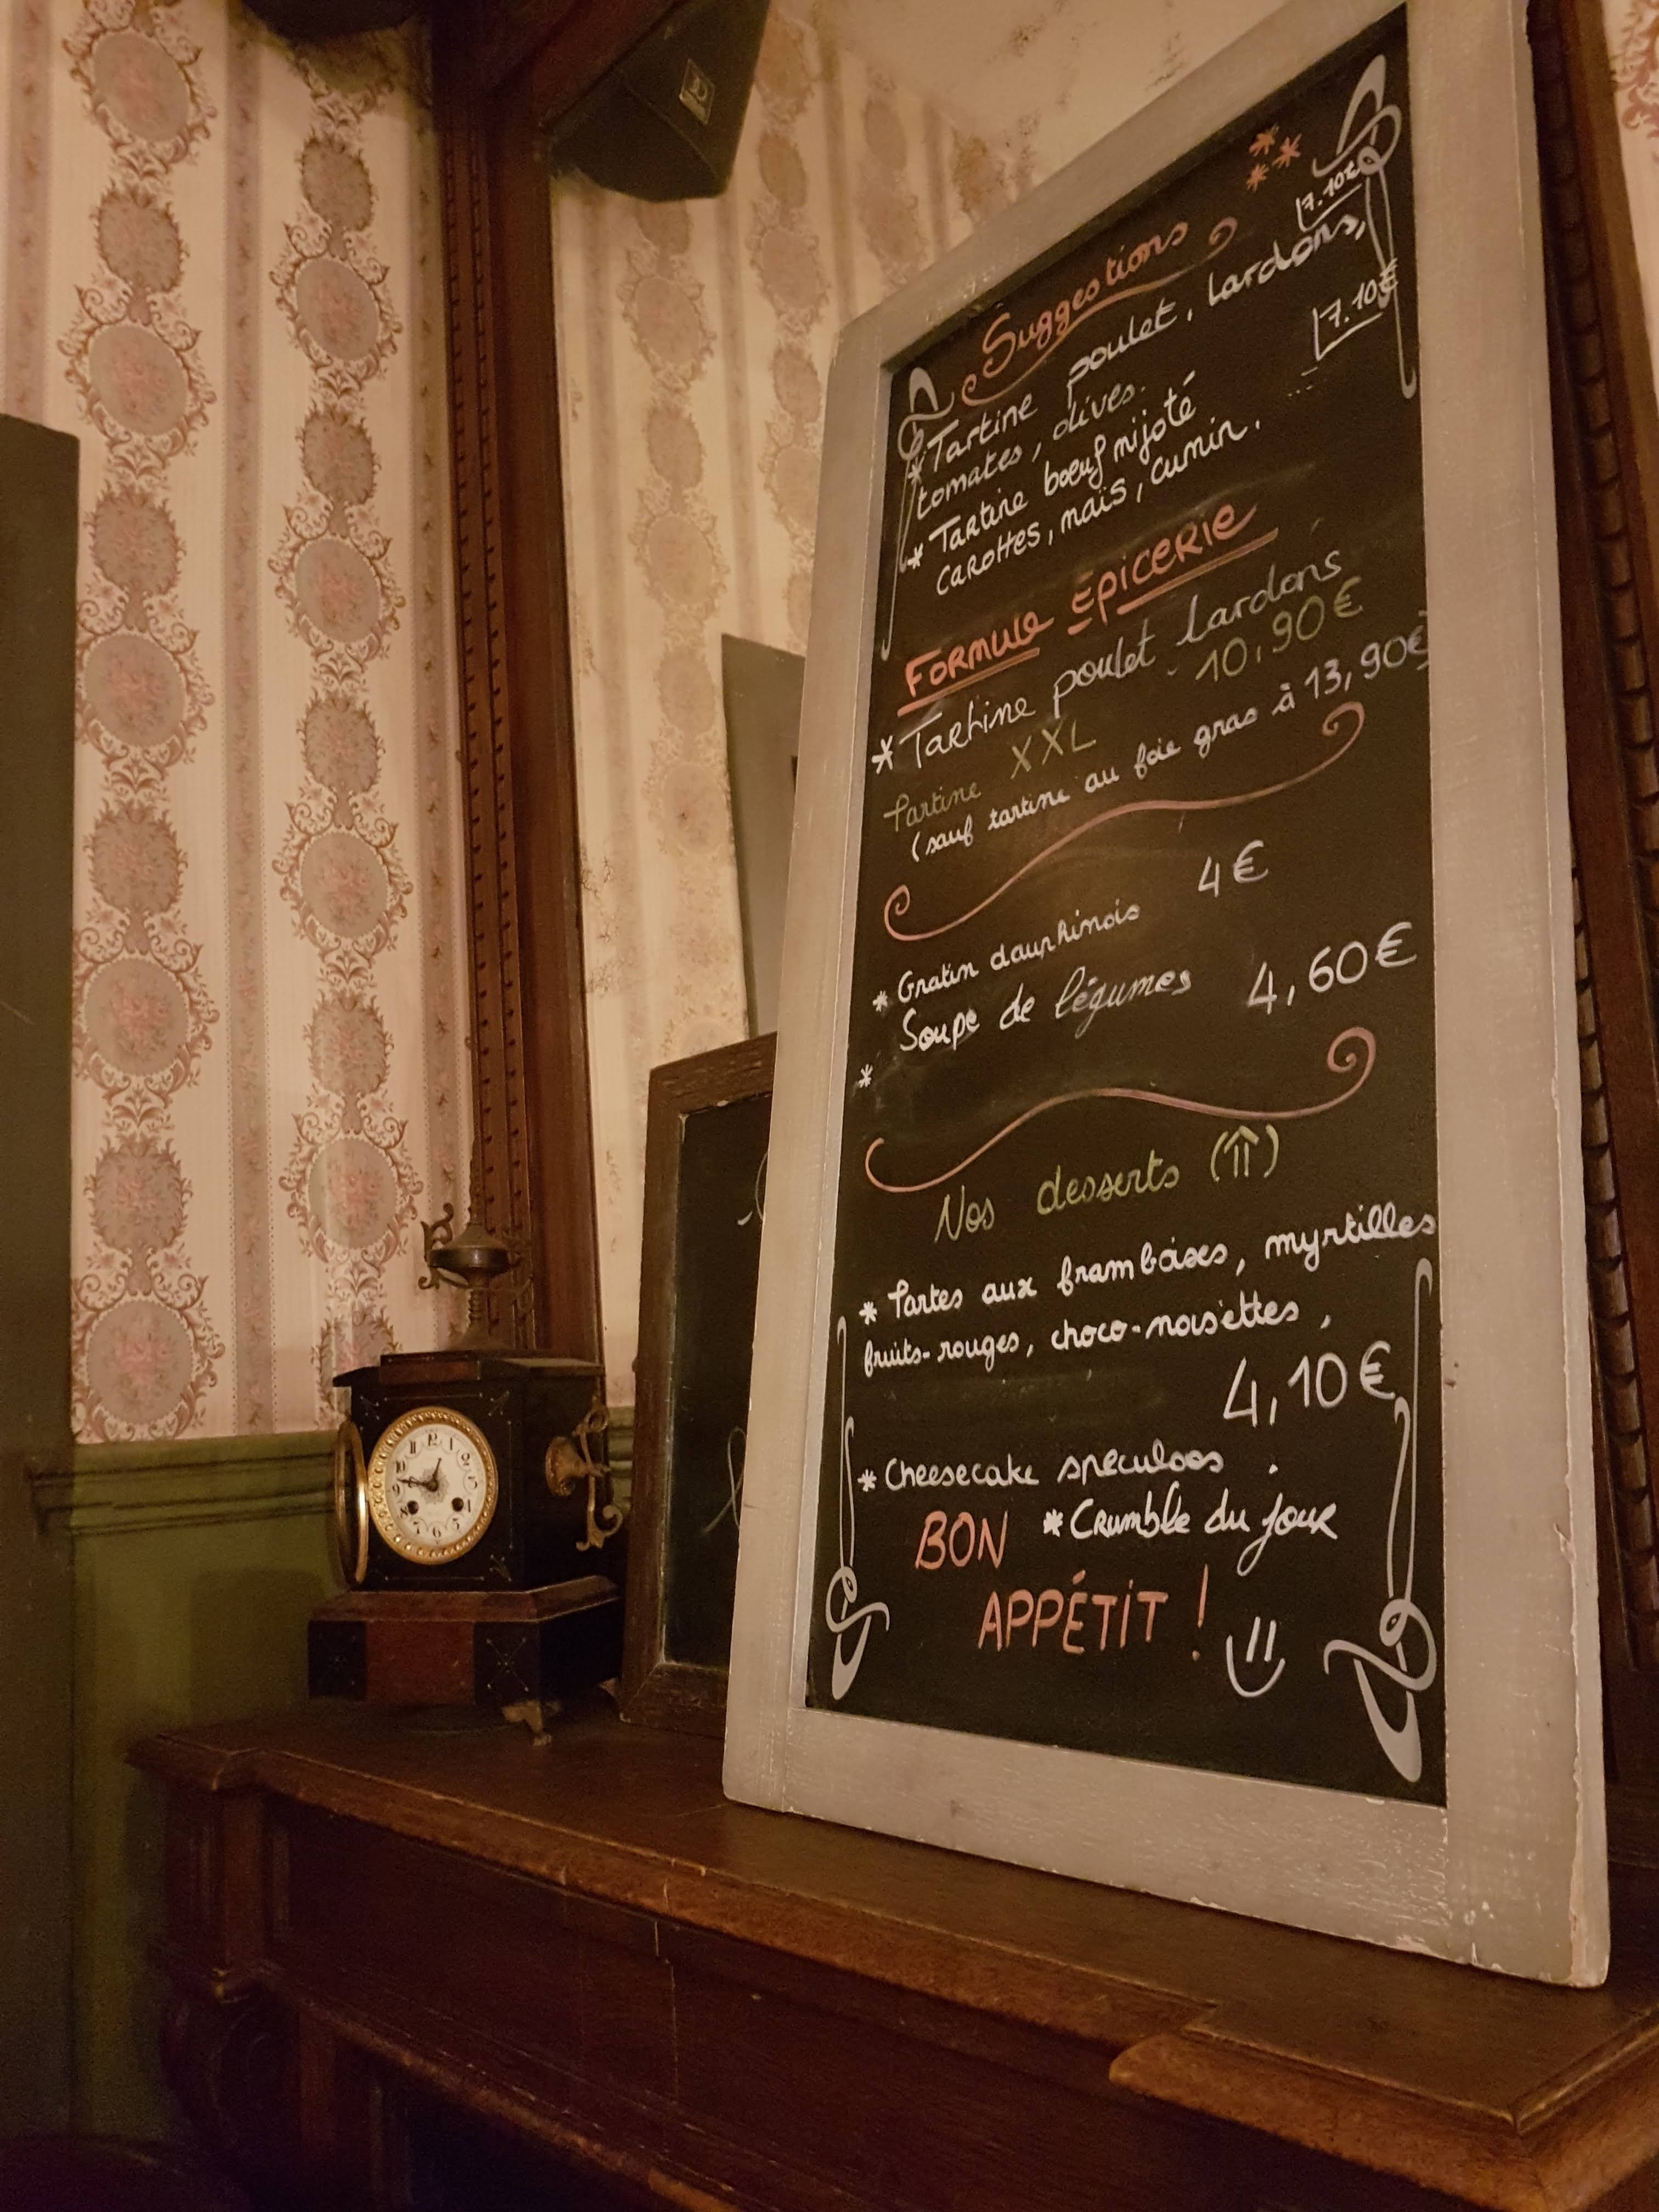 Suggestions
7.10€
*Tartine poulet, lardons,
tomates, olives.
7.10€
* Tartine bœuf mijoté
carottes, maïs, cumin.
FORMULE ÉPICERIE
* Tartine poulet lardons
10,90€
tartine XXL
(sauf tartine au foie gras à 13,90€
* Gratin dauphinois 4€
Soupe de légumes 4,60€
*
Nos desserts (⇈)
* Tartes aux framboises, myrtilles
fruits-rouges, choco-noisettes,
4,10€
* Cheesecake speculoos
BON * Crumble du jour
APPÉTIT !